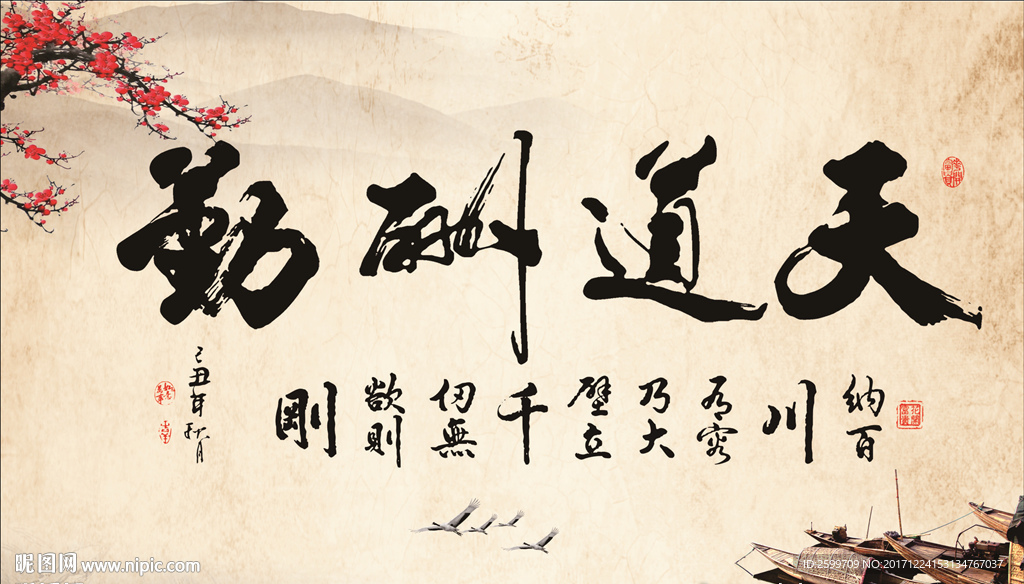 天道酬勤
纳百川有容乃大壁立千仞無欲則剛
己丑年秋月
昵图网 www.nipic.com
ID:2599709 NO:20171224153134767037